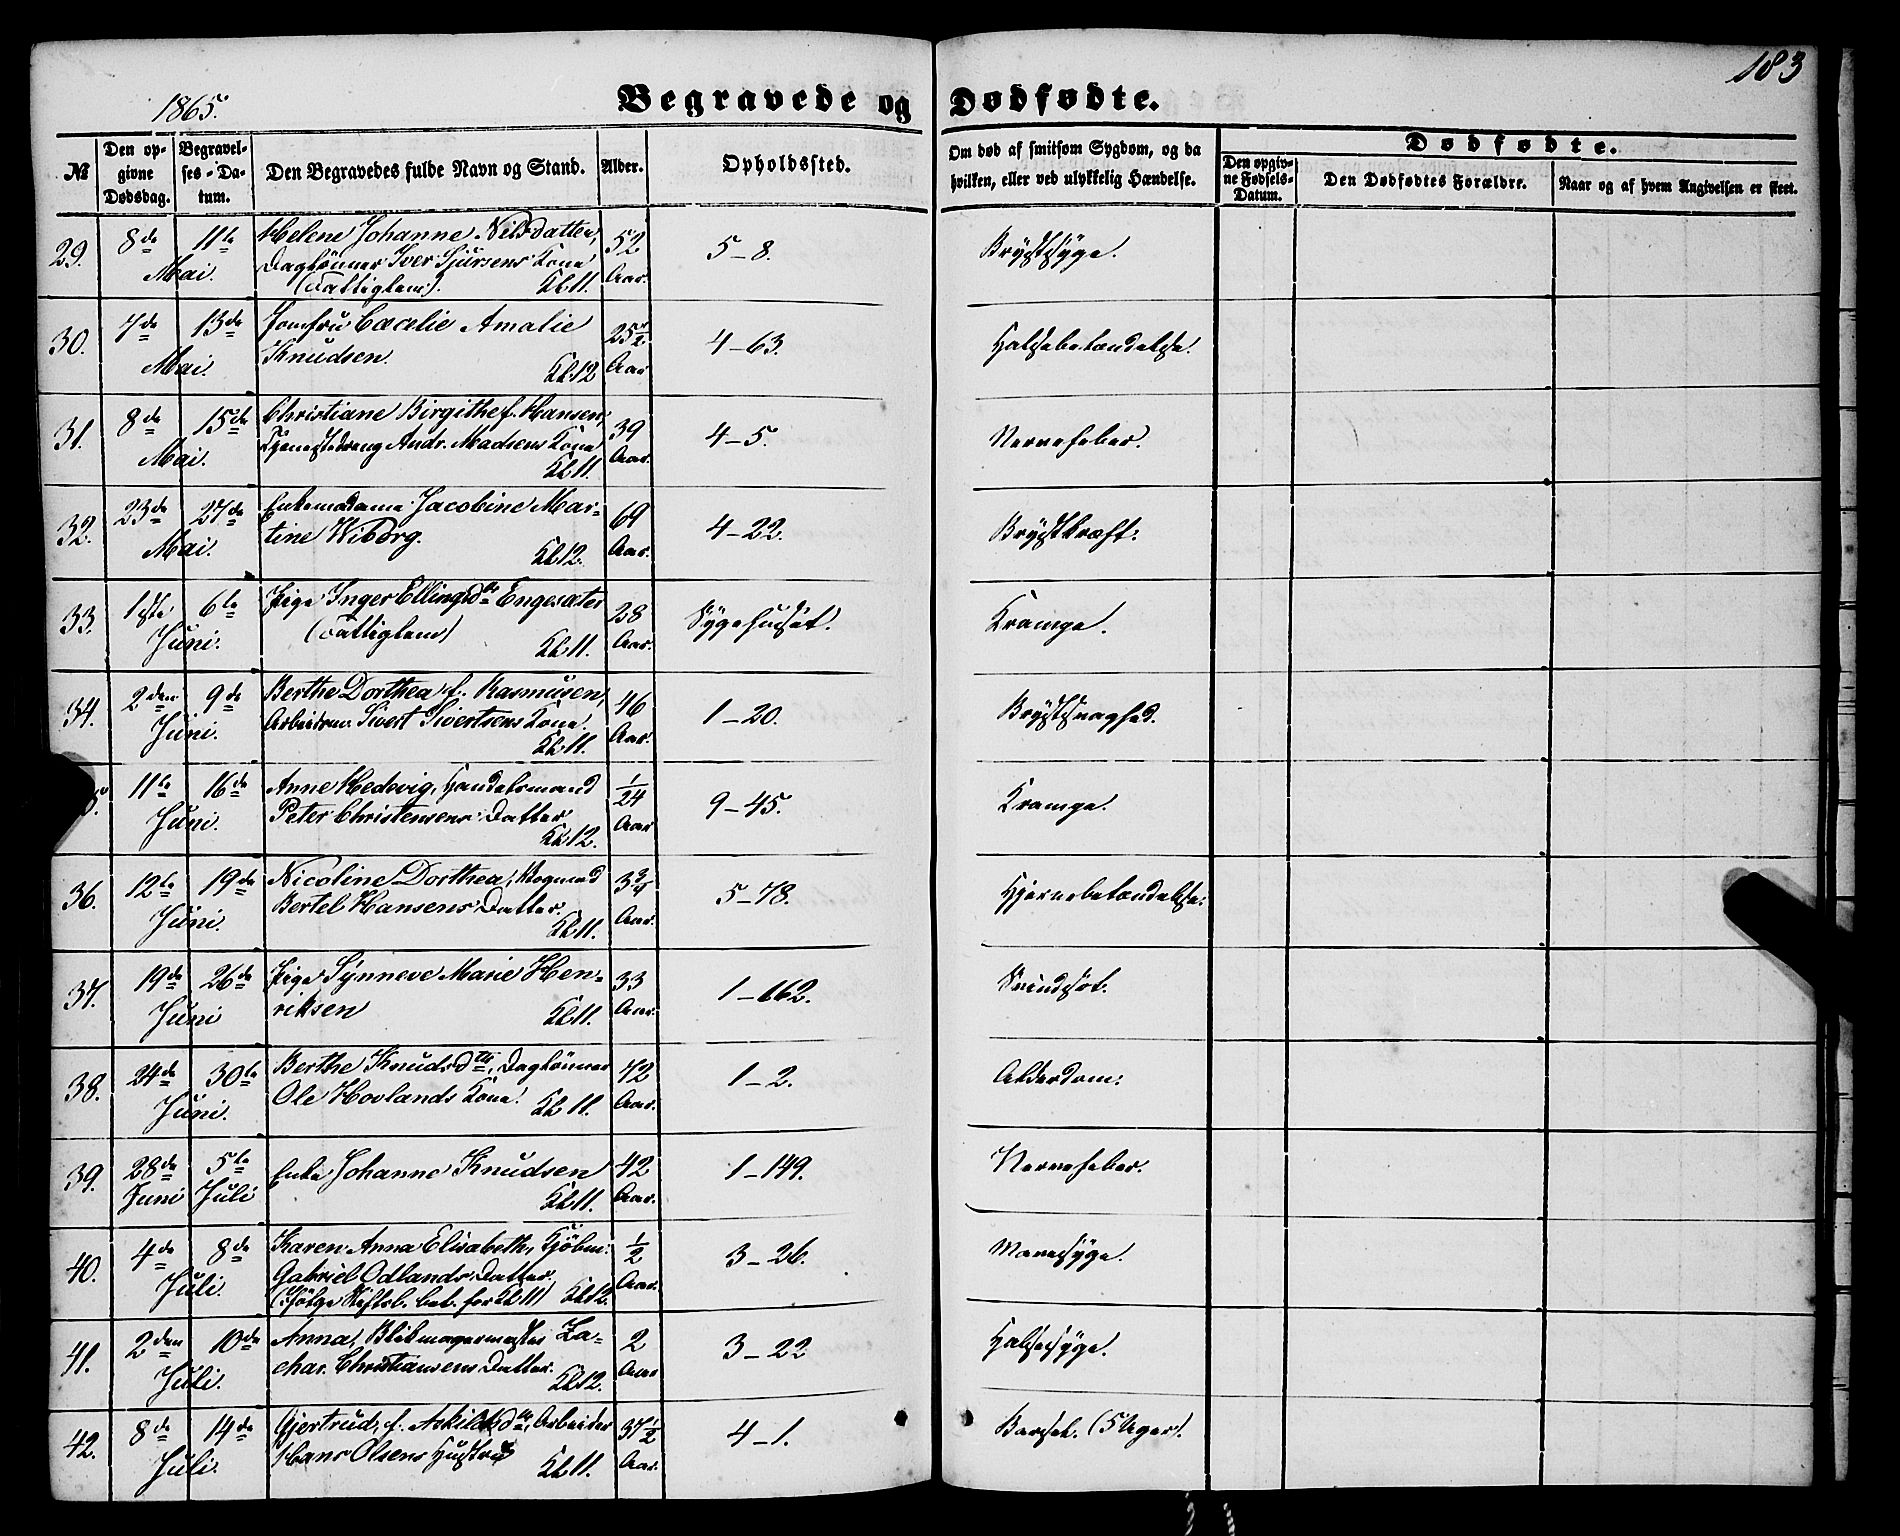 183
1865.
Begravede og Dødfødte.
№
Den op-
givne
Dødsdag.
Begravel-
ses-Da-
tum.
Den Begravedes fulde Navn og Stand.
Alder.
Opholdssted.
Om død af smitsom Sygdom, og da
hvilken, eller ved ulykkelig Hændelse.
Dødfødte.
Den opgiv-
ne Fødsels-
Datum.
Den Dødfødtes Forældre.
Naar og af hvem Angivelsen er skeet.
29. 8de 11te Helene Johanne Nilsdatter, 52 5-8. Brystsyge.
Mai. Daglønner Iver Sjursens Kone Aar.
(Fattiglem). Kl. 11.
30. 7de 13de Jomfru Cæcelie Amalie 25½ 4-63. Halsebetændelse.
Mai. Knudsen. Aar
Kl. 12
31. 8de 15de Christiane Birgithe f. Hansen, 39 4-5. Nervefeber.
Mai. Tjenestedreng Andr. Madsens Kone Aar.
Kl. 11.
32. 23de 27de Enkemadame Jacobine Mar- 69 4-22. Brystkræft.
Mai. tine Wiborg. Aar.
Kl. 12.
33. 1ste 6te Pige Inger Ellingsdtr Engesæter 28 Sygehuset. Krampe.
Juni. (Fattiglem) Kl. 11. Aar.
34. 2den 9de Berthe Dorthea f. Rasmusen, 46 1-20. Brystsvaghed.
Juni. Arbeidsm. Sivert Sivertsens Kone. Aar.
Kl. 11.
11te 16de Anne Hedevig, Handelsmand 1/24 9-45. Krampe.
Juni. Peter Christensens Datter. Aar
Kl. 12.
36. 12te 19de Nicoline Dorthea, Vognmd 3¾ 5-78. Hjernebetændelse.
Juni. Bertel Hansens Datter. Aar.
Kl. 11.
37. 19de 26de Pige Synneve Marie Hen- 33 1-162. Svindsot.
Juni riksen Kl. 11. Aar.
38. 24de 30te Berthe Knudsdtr, Daglønner 72 1-2. Alderdom.
Juni. Ole Hovlands Kone. Kl. 11. Aar.
39. 28de 5te Enke Johanne Knudsen 42 1-149. Nervefeber.
Juni Juli Kl. 11. Aar.
40. 4de 8de Karen Anna Elisabeth, Kjøbm. ½ 3-26. Mavesyge.
Juli. Gabriel Odlands Datter. Aar.
(Ifølge Stiftsb. bet. for Kl. 11) Kl. 12.
41. 2den 10de Anna, Blikmagermester Za- 2 3-22 Halsesyge.
Juli. char. Christiansens Datter. Aar
Kl. 12.
42. 8de 14de Gjertrud, f. Askildsdtr, Arbeider 37½ 4-1. Barsel. (5 Uger).
Juli. Hans Olsens Hustru Kl. 11. Aar.